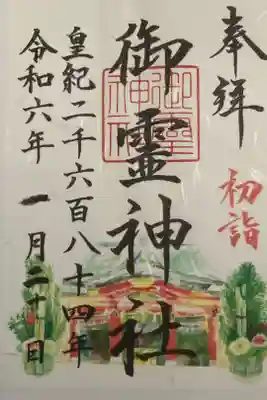 奉拝
初詣
御靈神社
皇紀二千六百八十四年
令和六年一月二十日